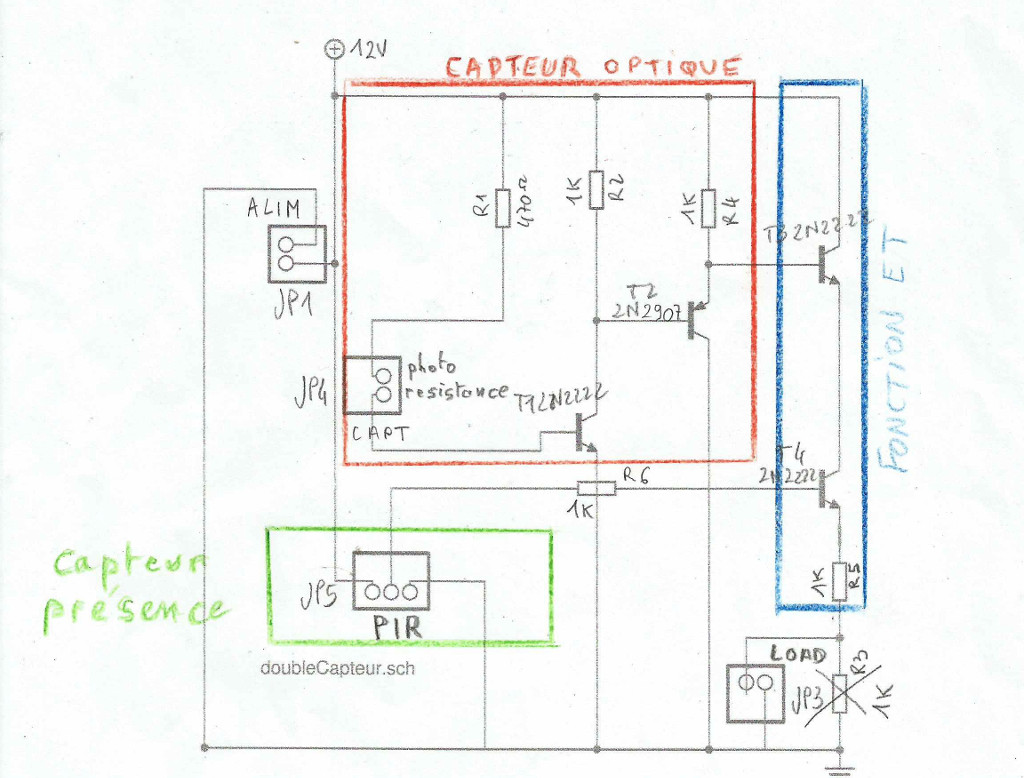 12V
CAPTEUR OPTIQUE
R1
470Ω
1K
R2
1K
R4
ALIM
JP1
T3 2N2222
T2
2N2907
FONCTION ET
JP4
photo
resistance
T1 2N2222
CAPT
T4
2N2222
R6
1K
1K
R5
Capteur
présence
JP5
PIR
doubleCapteur.sch
LOAD
R3
JP3
1K